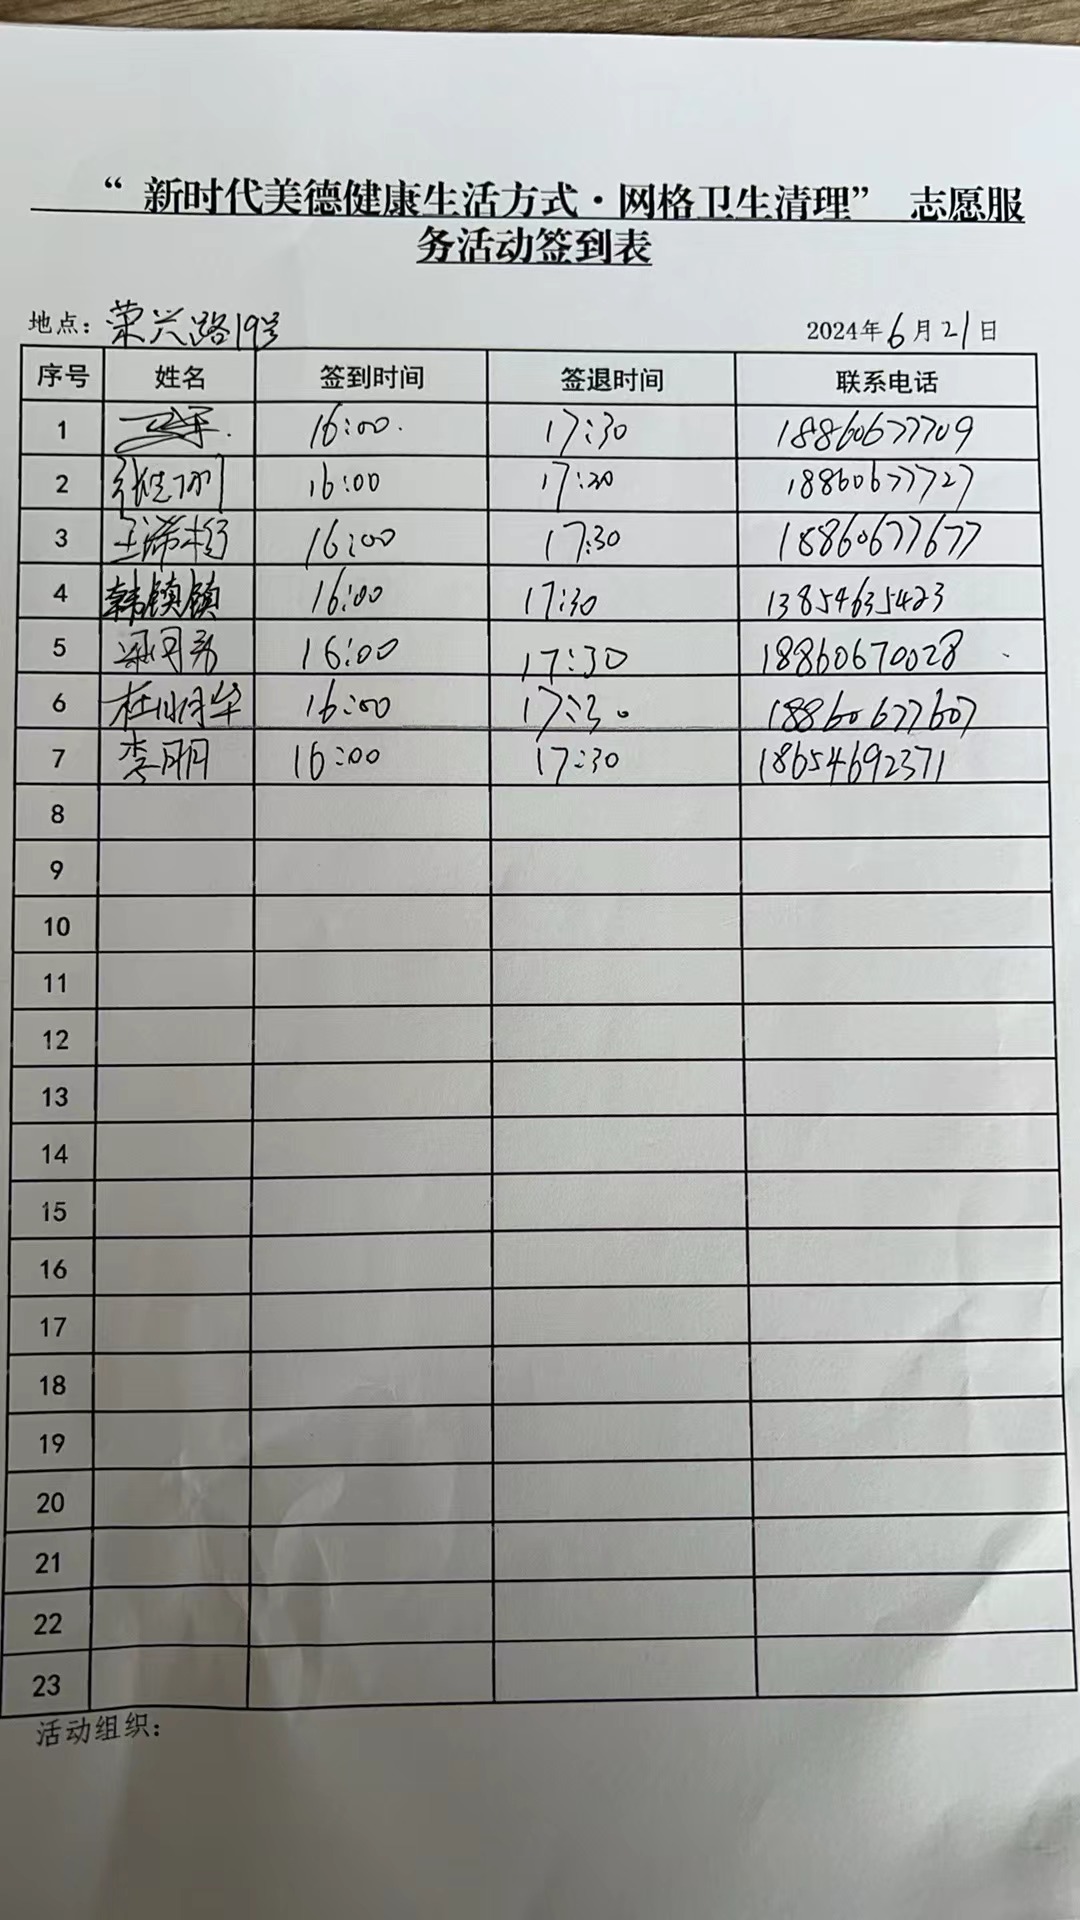 “ 新时代美德健康生活方式·网格卫生清理” 志愿服
务活动签到表
地点：荣兴路19号 2024年6月21日
序号 姓名 签到时间 签退时间 联系电话
1 16:00. 17:30 18860677709
2 16:00 17:30 18860677727
3 16:00 17:30 18860677677
4 韩镇镇 16:00 17:30 13854635423
5 16:00 17:30 18860670028
6 16:00 17:30 18860677607
7 李朋 16:00 17:30 18654692371
8
9
10
11
12
13
14
15
16
17
18
19
20
21
22
23
活动组织：